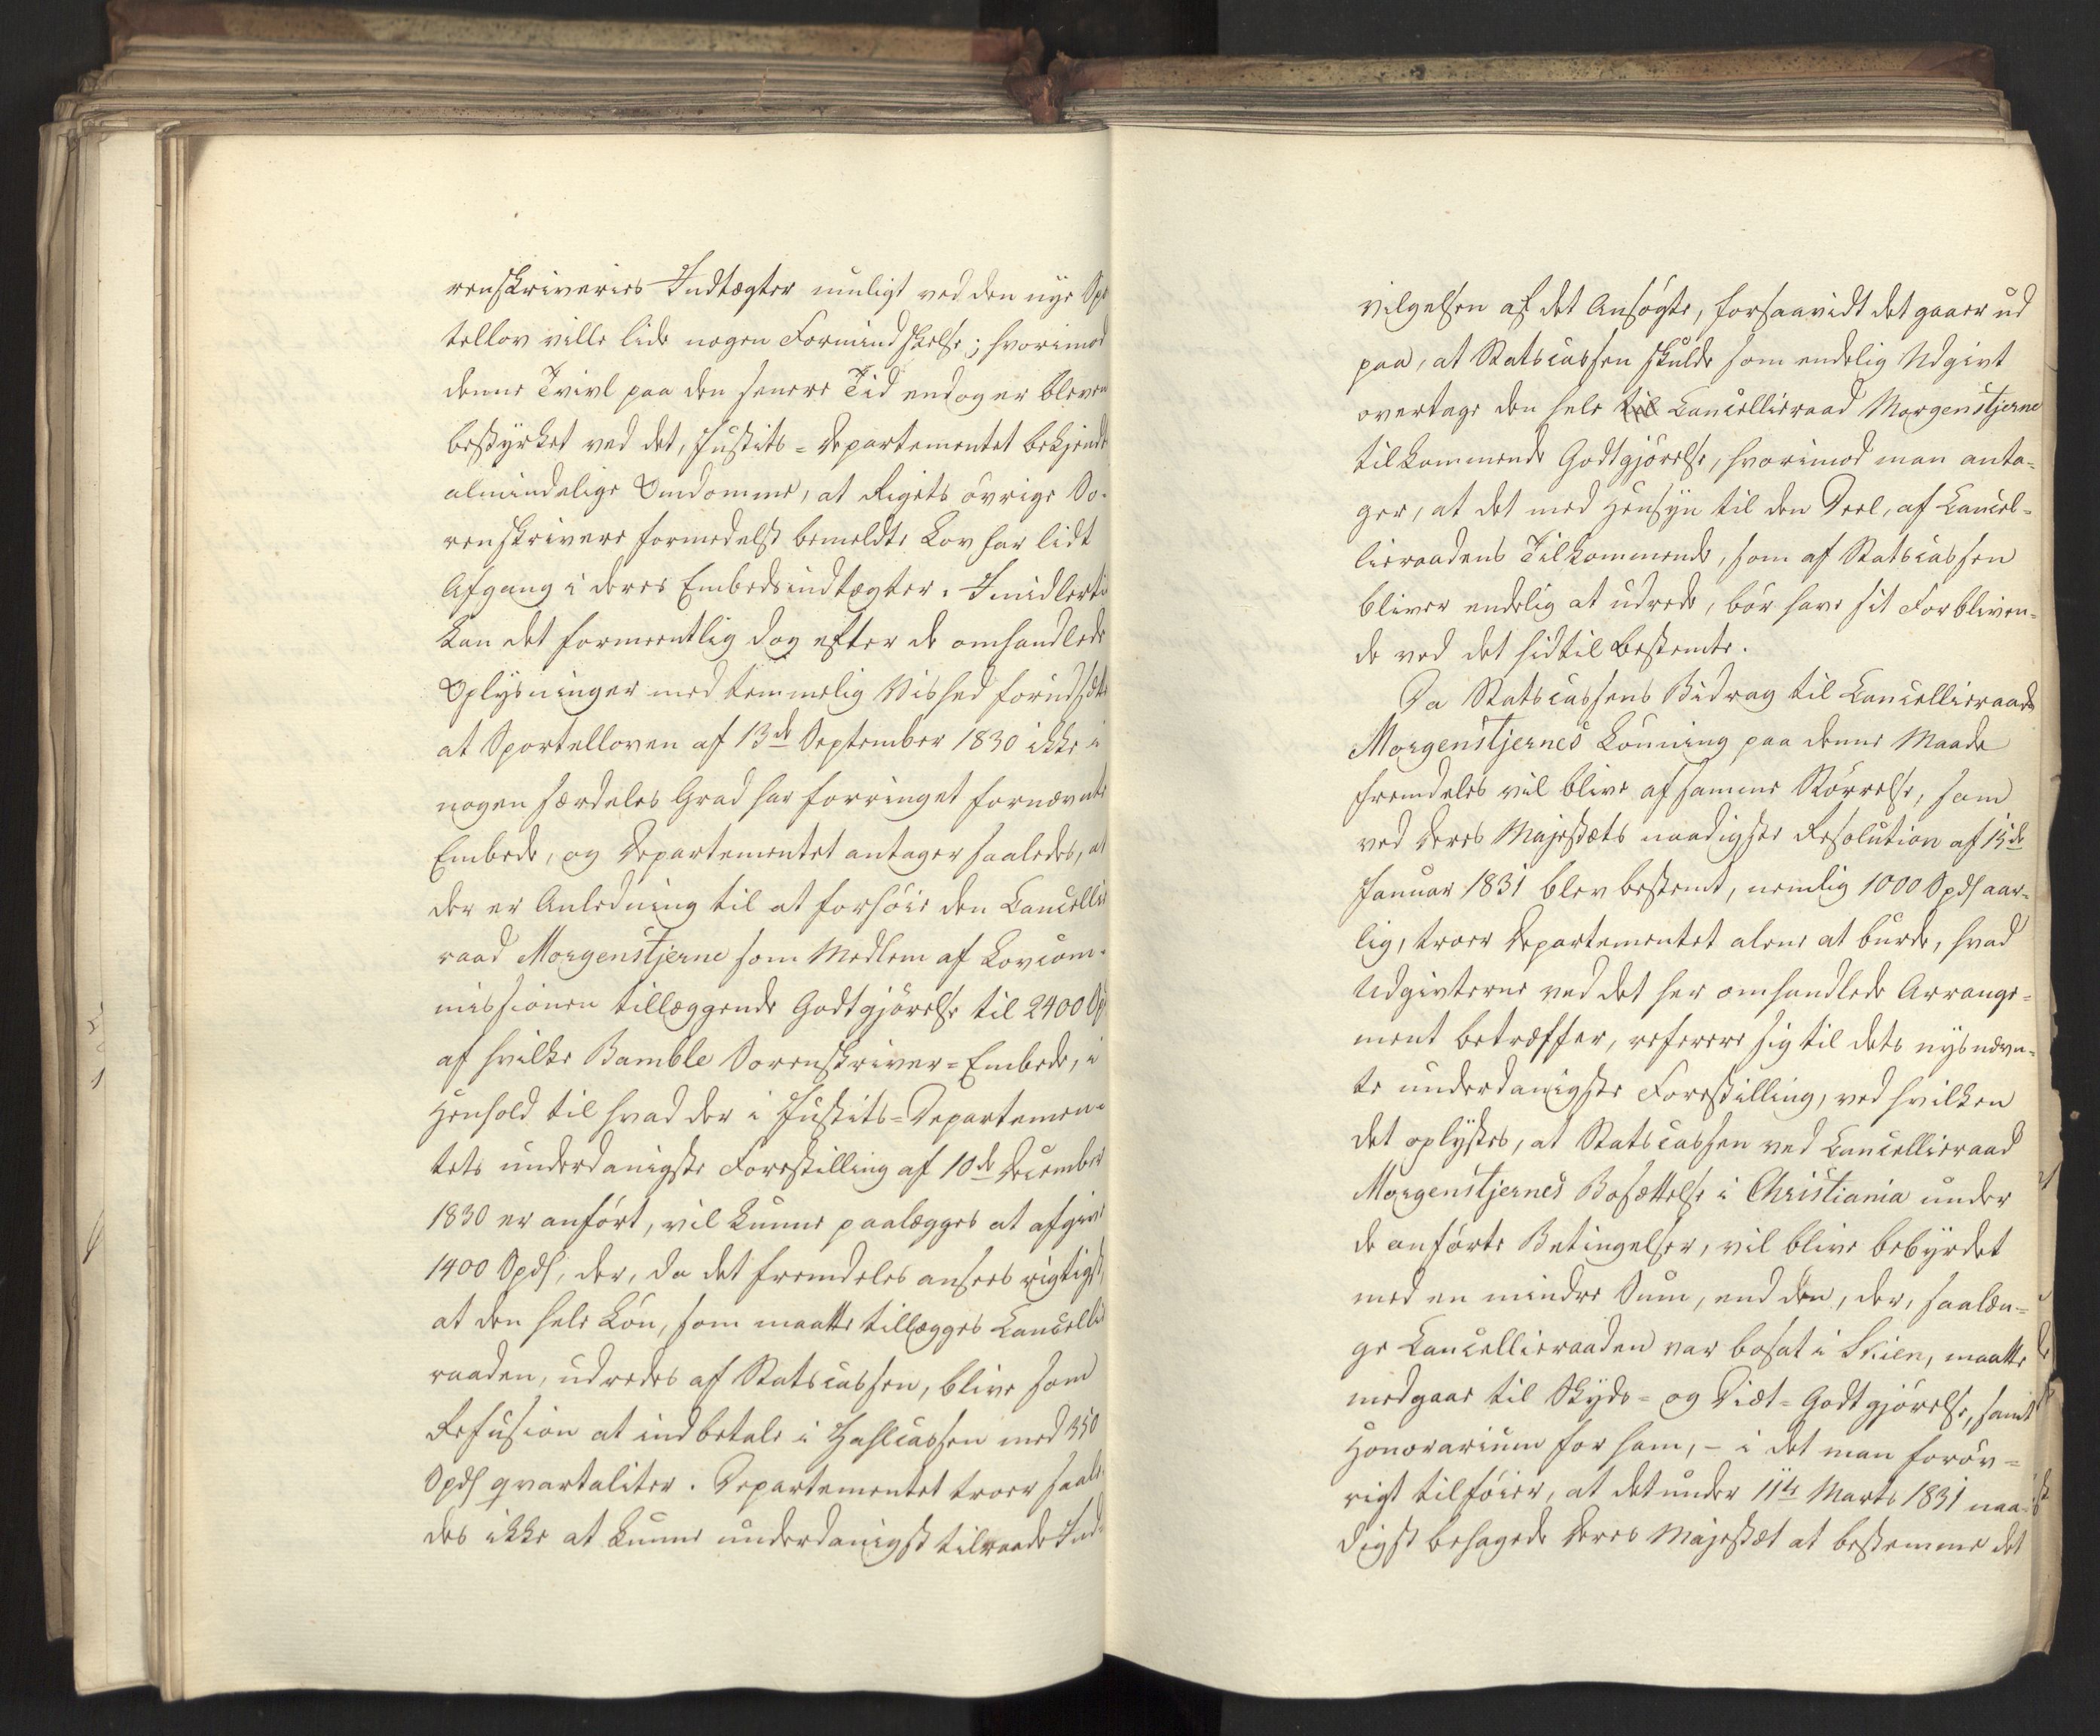 renskriveries Indtægter muligt ved den nye Spor
tellov ville lide nogen Formindskelse; hvorimod
denne Tvivl paa den senere Tid endog er bleven
bestyrket ved det, Justits-Departementet bekjendte
almindelige Omdømme, at Rigets øvrige So-
renskrivere formedelst bemeldte Lov har lidt
Afgang i deres Embedsindtægter. Imidlertid
kan det formeentlig dog efter de omhandlede
Oplysninger med temmelig Vished forudsættes
at Sportelloven af 13de September 1830 ikke i
nogen særdeles Grad har forringet fornævnte
Embede, og Departementet antager saaledes, at
der er Anledning til at forhøie den Cancellie
raad Morgenstjerne som Medlem af Lovcom-
missionen tillæggende Godtgjørelse til 2400 Spd
af hvilke Bamble Sorenskriver-Embede, i
Henhold til hvad der i Justits-Departemen-
tets underdanigste Forestilling af 10de December
1830 er anført, vil kunne paalægges at afgive
1400 Spd, der, da det fremdeles ansees rigtigst,
at den hele Løn, som maatte tillægges Cancellie
raaden, udredes af Statscassen, blive som
Refusion at indbetale i Zahlcassen med 350
Spd qvartaliter. Departementet troer saale-
des ikke at kunne underdanigst tilraade Ind-
vilgelsen af det Ansøgte, forsaavidt det gaaer ud
paa, at Statscassen skulde som endelig Udgivt
overtage den hele til Cancellieraad Morgenstjerne
tilkommende Godtgjørelse, hvorimod man anta-
ger, at det med Hensyn til den Deel, af Cancel-
lieraadens Tilkommende, som af Statscassen
bliver endelig at udrede, bør have sit Forbliven-
de ved det hidtil Bestemte.
Da Statscassens Bidrag til Cancellieraad
Morgenstjernes Lønning paa denne Maade
fremdeles vil blive af samme Størrelse, som
ved Deres Majestæts naadigste Resolution af 15de
Januar 1831 blev bestemt, nemlig 1000 Spd aar-
lig, troer Departementet alene at burde, hvad
Udgivterne ved det her omhandlede Arrange-
ment betræffer, referere sig til dets nysnævn-
te underdanigste Forestilling, ved hvilken
det oplystes, at Statscassen ved Cancellieraad
Morgenstjernes Bosættelse i Christiania under
de anførte Betingelser, vil blive bebyrdet
med en mindre Sum, end den, der, saalæn-
ge Cancellieraaden var bosat i Skien, maatte
medgaae til Skyds- og Diæt-Godtgjørelse, samt
Honorarium for ham, - i det man forøv-
rigt tilføier, at det under 11te Marts 1831 naa-
digst behagede Deres Majestæt at bestemme det